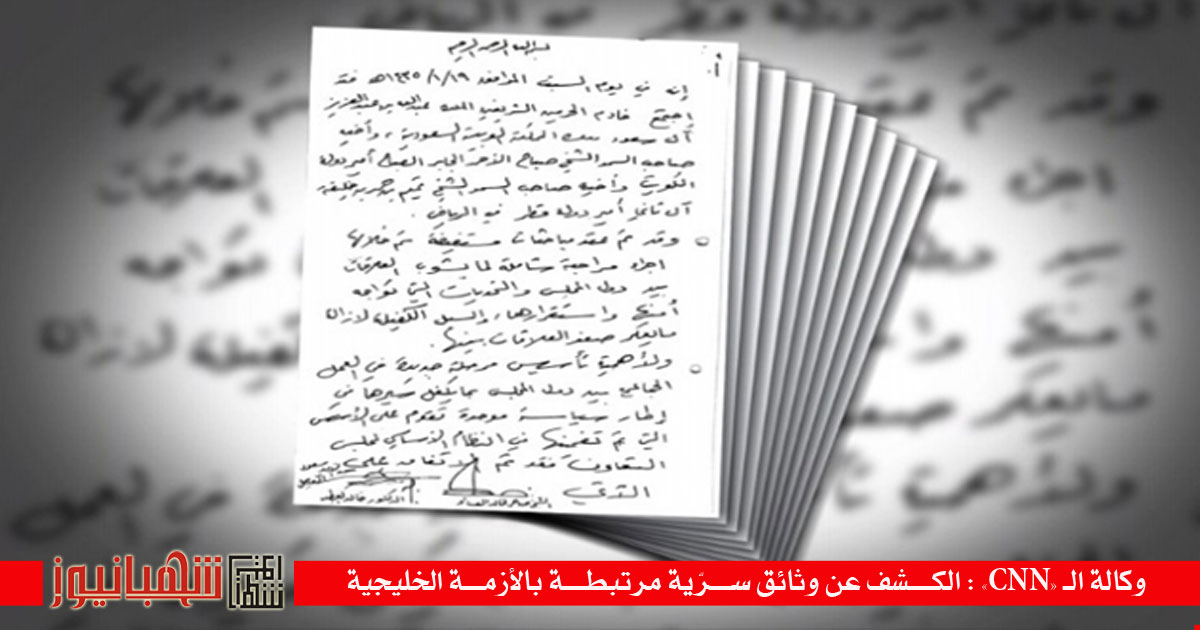 بسم الله الرحمن الرحيم
إنه في يوم السبت الموافق ١٤٣٥/١/١٩هـ فقد
اجتمع خادم الحرمين الشريفين الملك عبدالله بن عبدالعزيز
آل سعود ملك المملكة العربية السعودية، وأخيه
صاحب السمو الشيخ صباح الأحمد الجابر الصباح أمير دولة
الكويت وأخيه صاحب السمو الشيخ تميم بن حمد بن خليفة
آل ثاني أمير دولة قطر في الرياض.
○ وقد تم عقد مباحثات مستفيضة تم خلالها
اجراء مراجعة شاملة لما يشوب العلاقات
بين دول المجلس والتحديات التي تواجه
أمنها واستقرارها، والسبل الكفيلة لازالة
مايعكر صفو العلاقات بينها.
○ ولأهمية تأسيس مرحلة جديدة في العمل
الجماعي بين دول المجلس بما يكفل سيرها في
إطار سياسة موحدة تقوم على الأسس
التي تم تضمينها في النظام الأساسي لمجلس
التعاون فقد تم الاتفاق على
التالي
وكالة الـ «CNN» : الكـشف عن وثائق سـرّية مرتبطـة بالأزمـة الخليجية
شهبانيوز